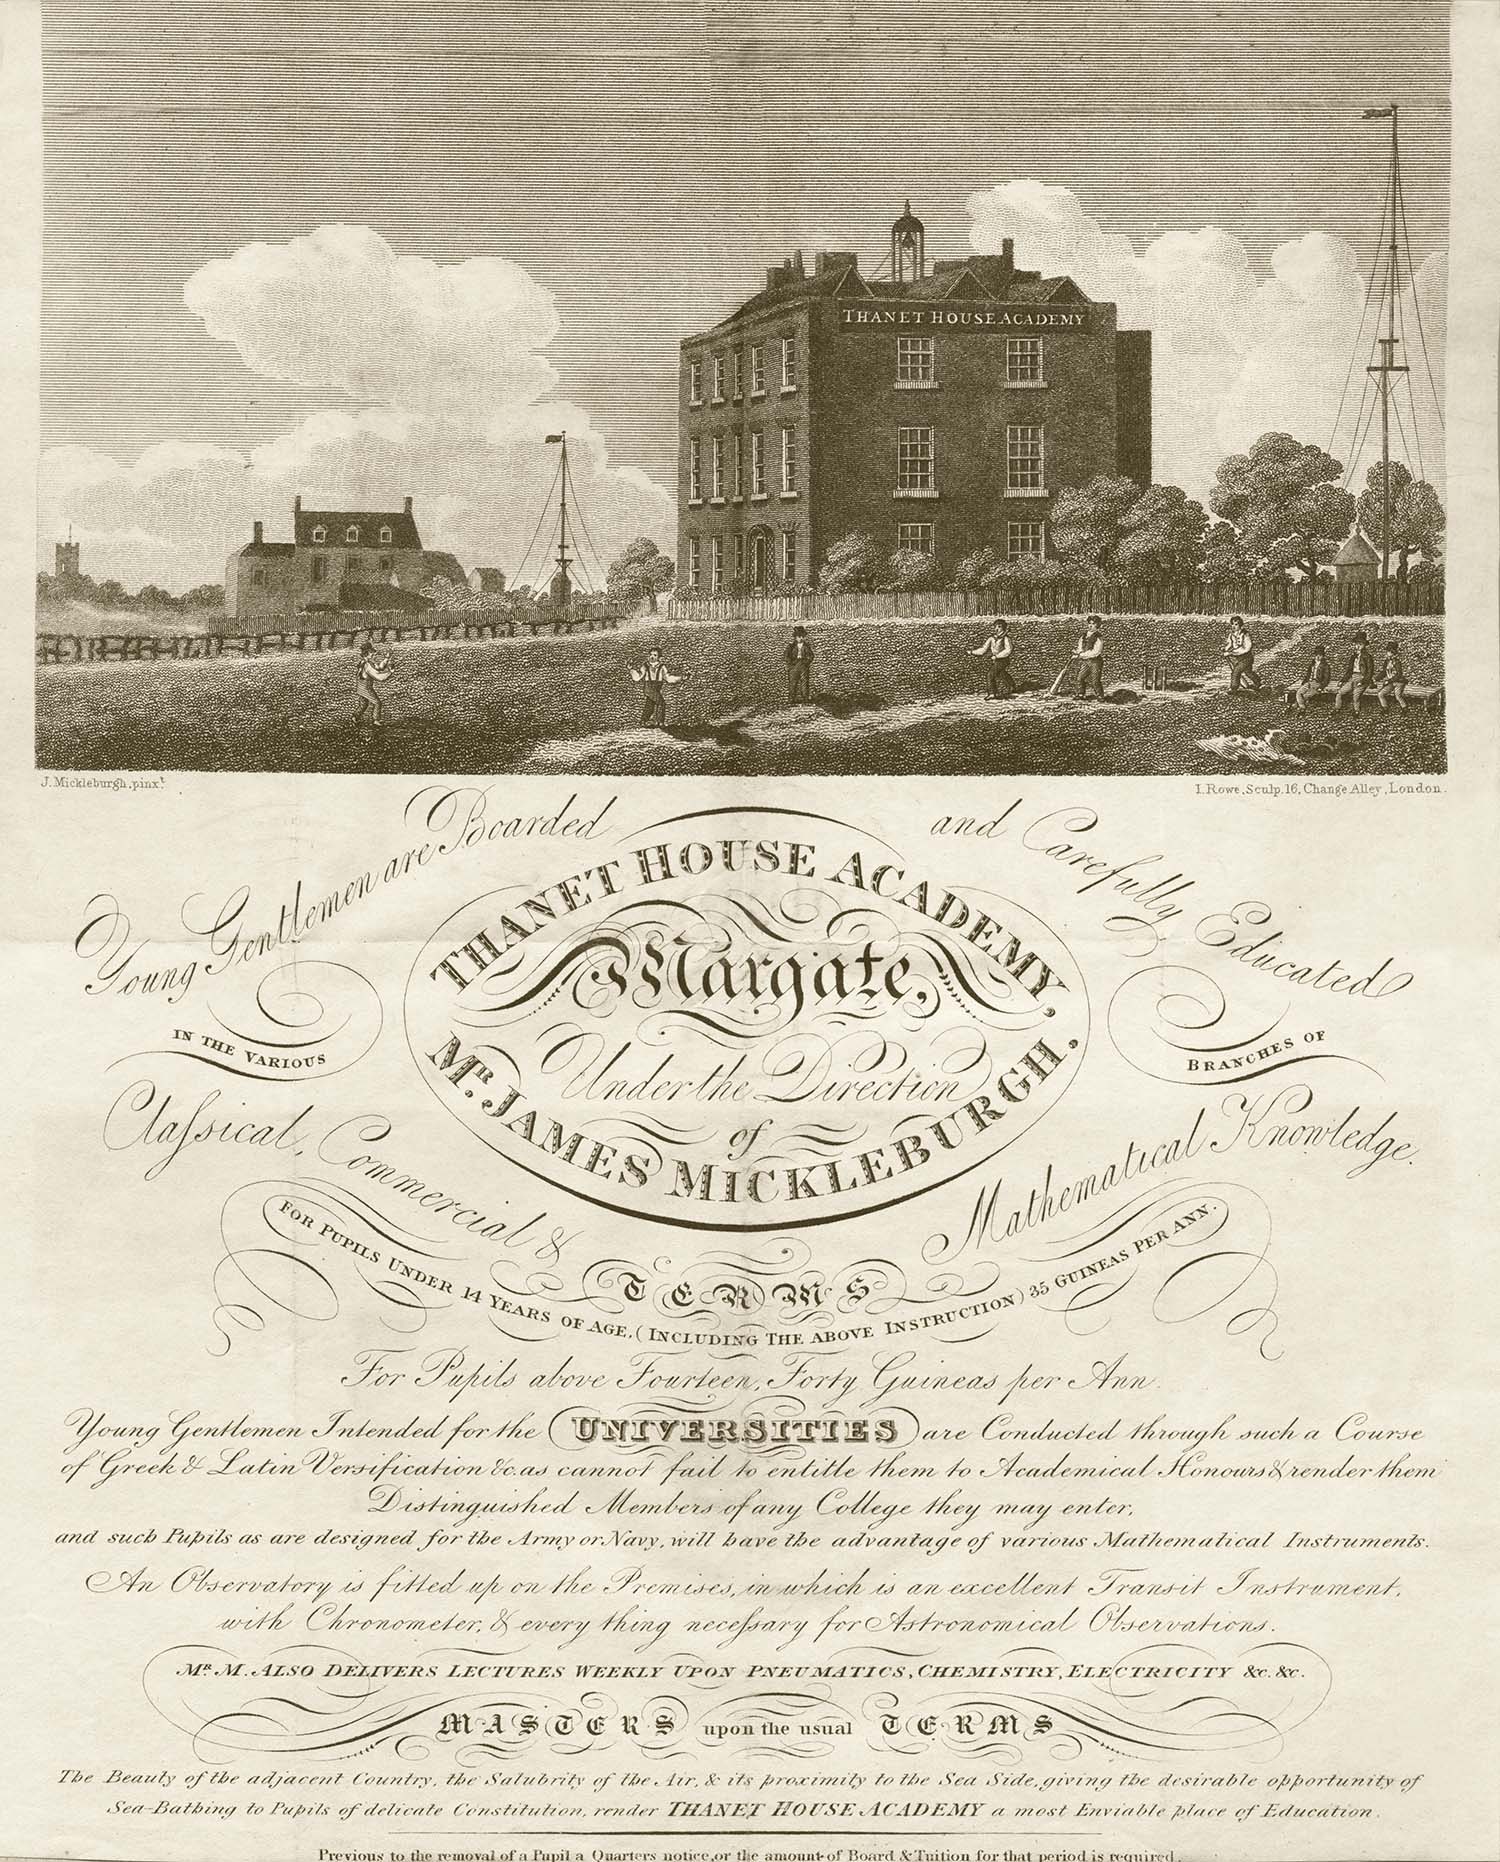 THANET HOUSE ACADEMY
J. Mickleburgh, pinxt.
I. Rowe, Sculp. 16, Change Alley, London.
Young Gentlemen are Boarded and Carefully Educated
THANET HOUSE ACADEMY,
Margate,
Under the Direction
of
MR. JAMES MICKLEBURGH.
IN THE VARIOUS BRANCHES OF
Claſsical, Commercial & Mathematical Knowledge.
TERMS
FOR PUPILS UNDER 14 YEARS OF AGE, (INCLUDING THE ABOVE INSTRUCTION) 35 GUINEAS PER ANN.
For Pupils above Fourteen, Forty Guineas per Ann.
Young Gentlemen Intended for the UNIVERSITIES are Conducted through such a Course
of Greek & Latin Versification &c. as cannot fail to entitle them to Academical Honours & render them
Distinguished Members of any College they may enter,
and such Pupils as are designed for the Army or Navy, will have the advantage of various Mathematical Instruments.
An Observatory is fitted up on the Premises, in which is an excellent Transit Instrument,
with Chronometer, & every thing neceſsary for Astronomical Observations.
MR. M. ALSO DELIVERS LECTURES WEEKLY UPON PNEUMATICS, CHEMISTRY, ELECTRICITY &c. &c.
MASTERS upon the usual TERMS
The Beauty of the adjacent Country, the Salubrity of the Air, & its proximity to the Sea Side, giving the desirable opportunity of
Sea-Bathing to Pupils of delicate Constitution, render THANET HOUSE ACADEMY a most Enviable place of Education.
Previous to the removal of a Pupil a Quarters notice, or the amount of Board & Tuition for that period is required.